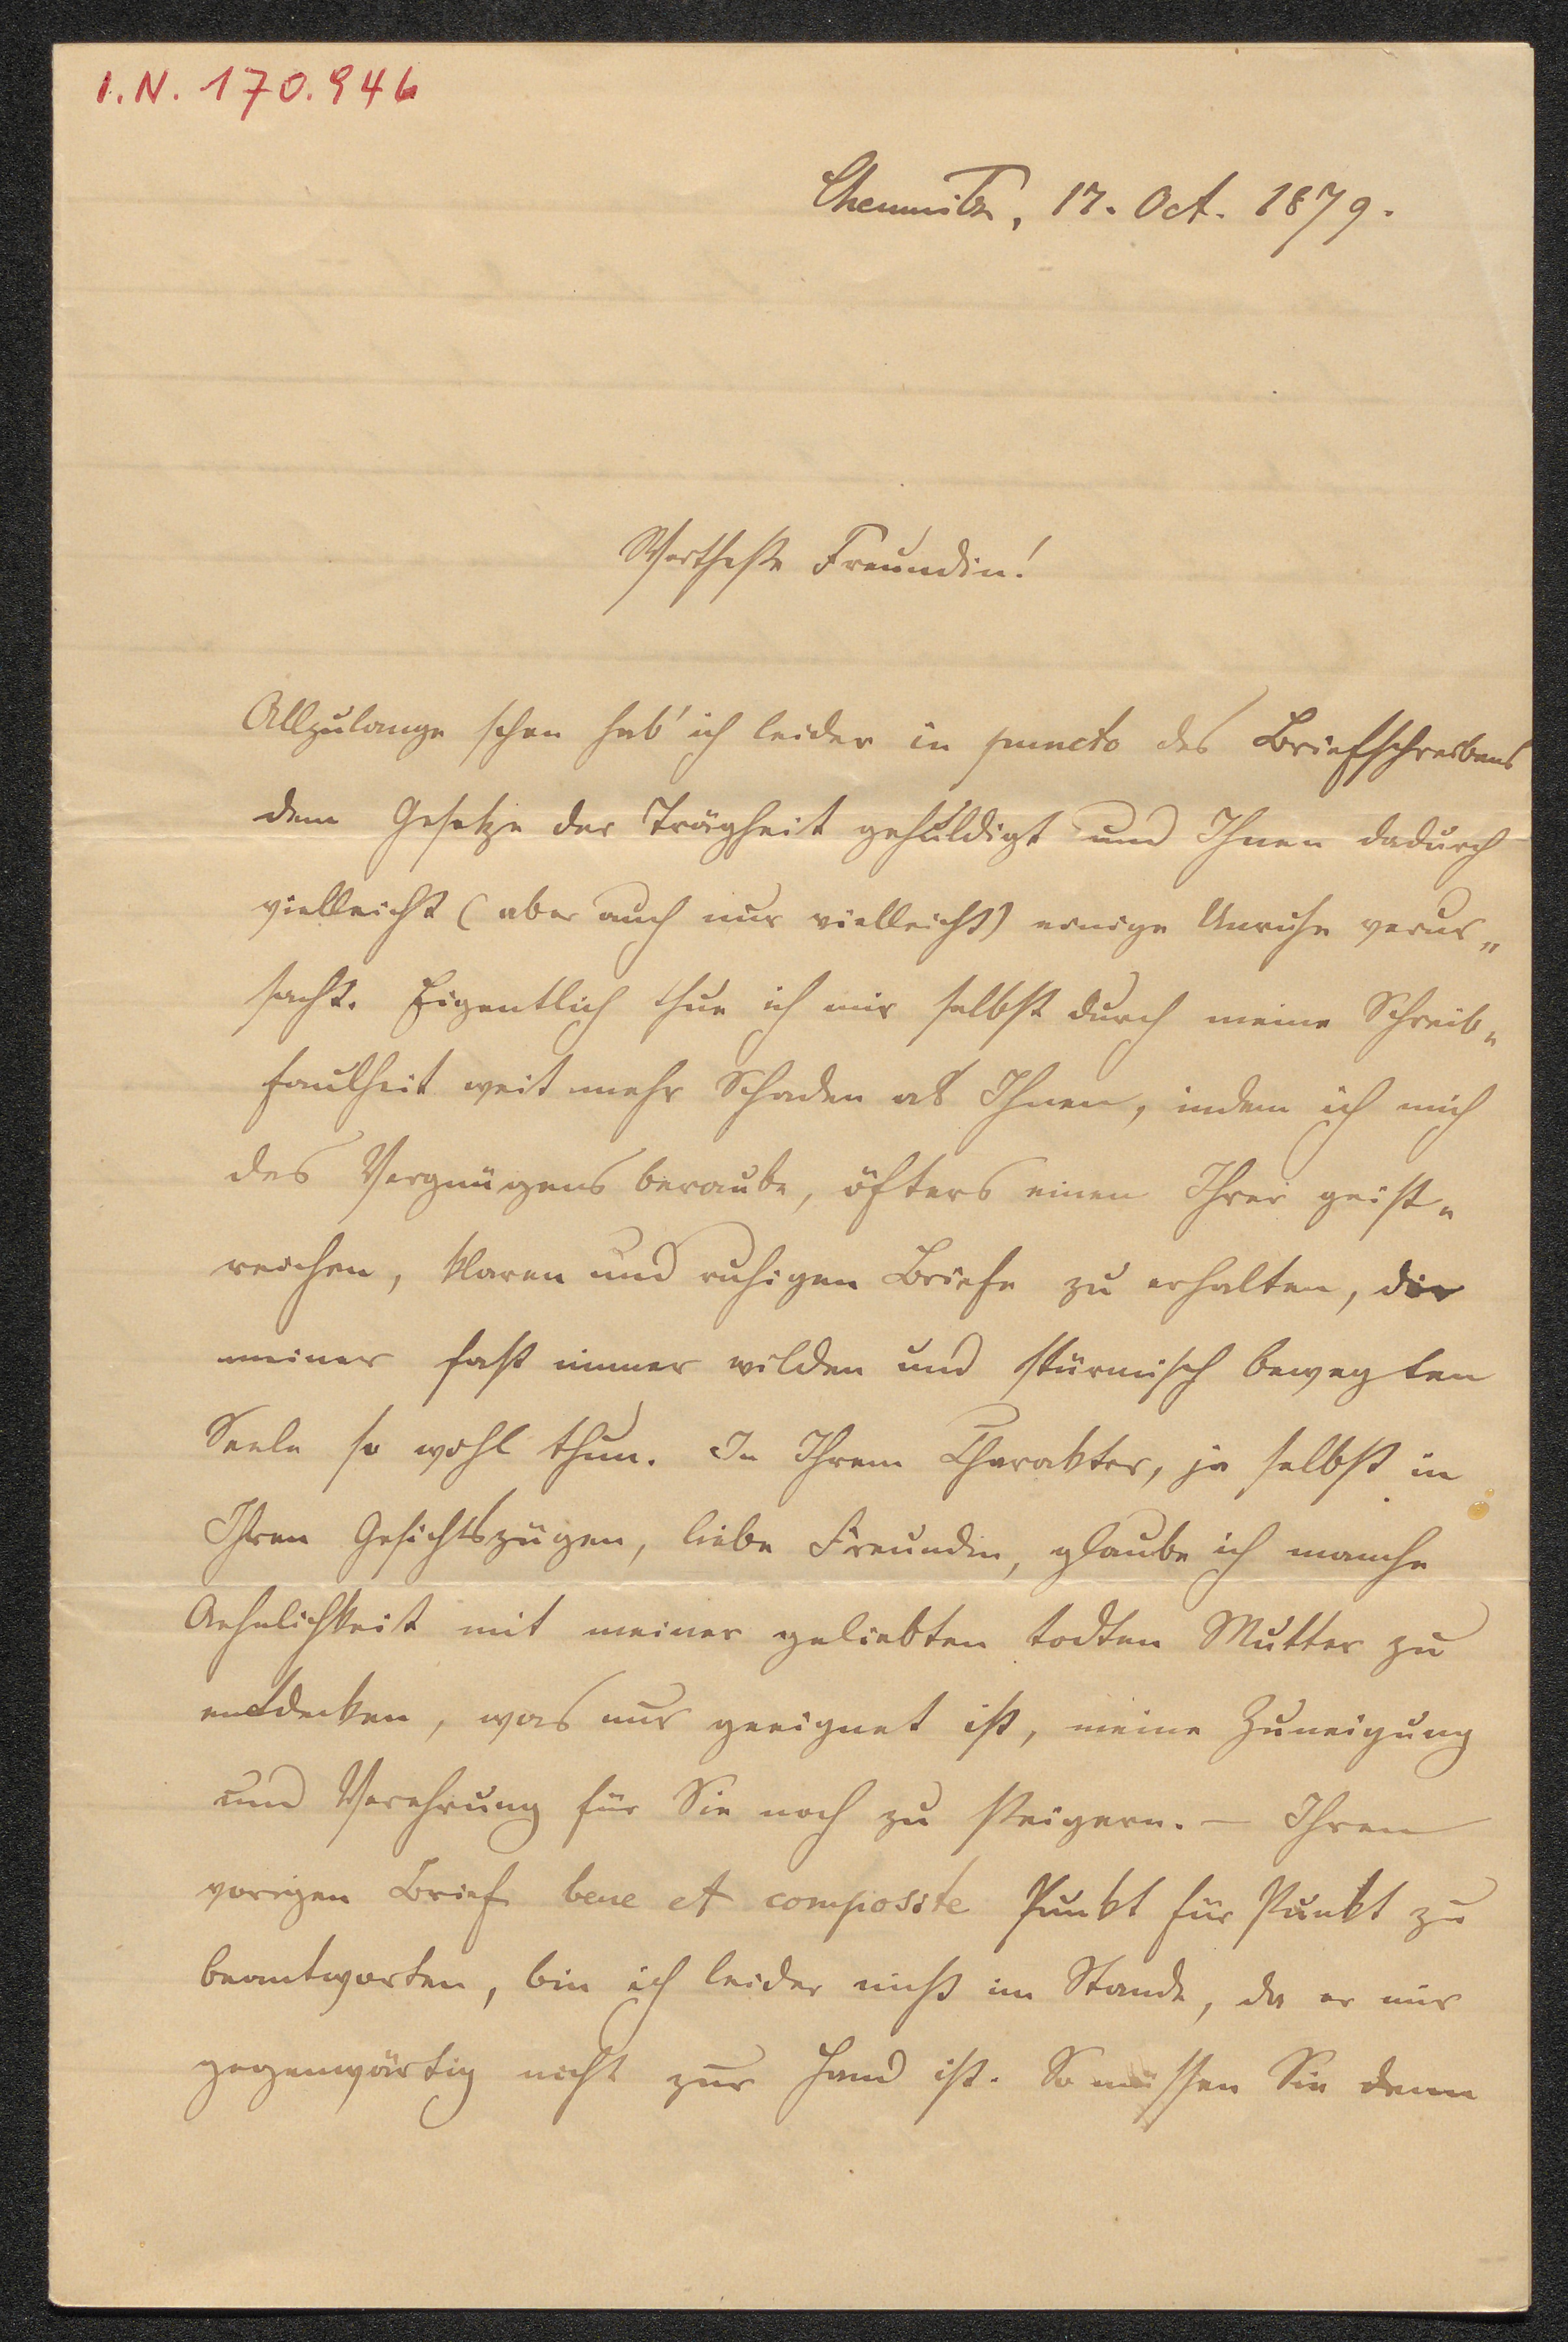 I.N. 170.946
Chemnitz, 17. Oct. 1879.
Wertheste Freundin!
Allzulange schon hab' ich leider in puncto des Briefschreibens
dem Gesetze der Trägheit gehuldigt und Ihnen dadurch
vielleicht (aber auch nur vielleicht) einige Unruhe verur„
sacht. Eigentlich thue ich mir selbst durch meine Schreib„
faulheit weit mehr Schaden als Ihnen, indem ich mich
des Vergnügens beraube, öfters einen Ihrer geist„
reichen, klaren und ruhigen Briefe zu erhalten, die
meiner fast immer wilden und stürmisch bewegten
Seele so wohl thun. In Ihrem Charakter, ja selbst in
Ihren Gesichtszügen, liebe Freundin, glaube ich manche
Aehnlichkeit mit meiner geliebten todten Mutter zu
entdecken, was nur geeignet ist, meine Zuneigung
und Verehrung für Sie noch zu steigern. — Ihren
vorigen Brief bene et composite Punkt für Punkt zu
beantworten, bin ich leider nicht im Stande, da er mir
gegenwärtig nicht zur Hand ist. So müssen Sie denn